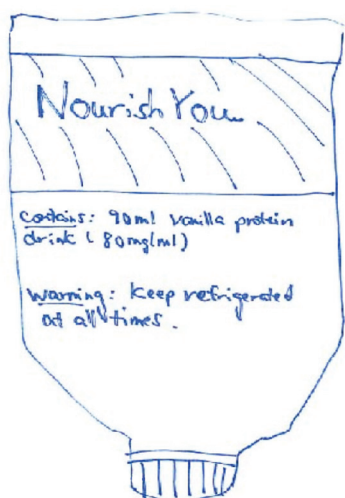 Nourish You
Contains: 90ml vanilla protein
drink (80mg/ml)
Warning: Keep refrigerated
at all times.